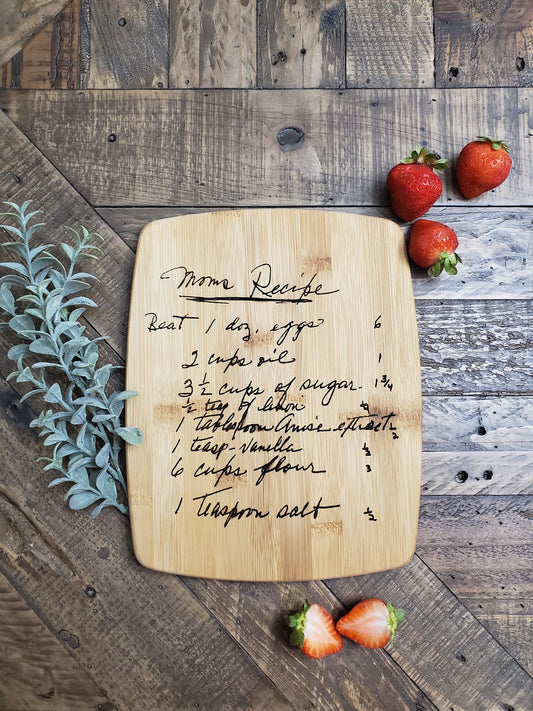 Moms Recipe
Beat 1 doz. eggs 6
2 cups oil 1
3 ½ cups of sugar 1 ¾
½ teasp of lemon
1 tablespoon Anise extract
1 teasp-vanilla ½
6 cups flour 3
1 Teaspoon salt ½